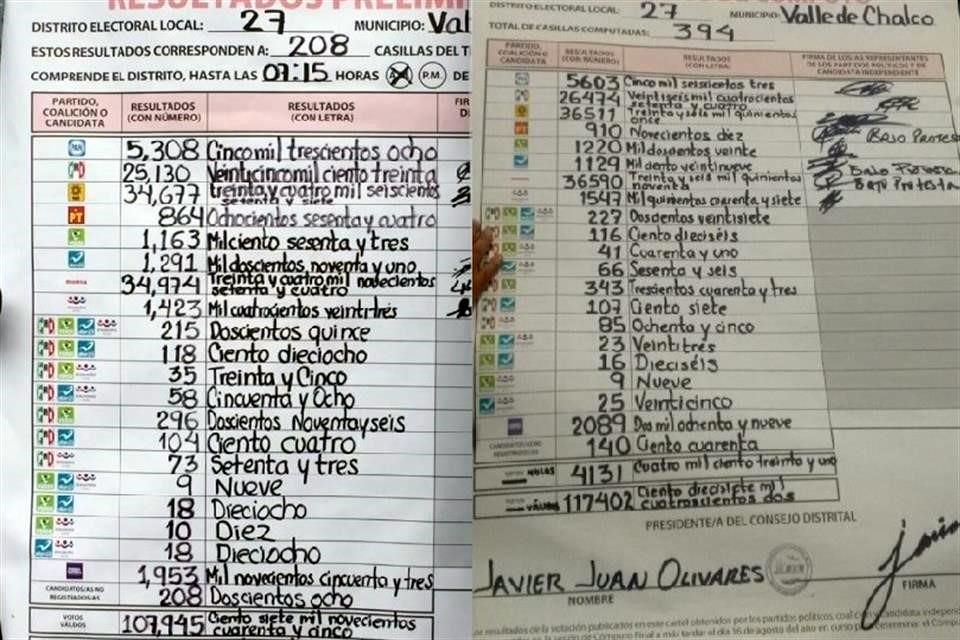 RESULTADOS PRELIMI
DISTRITO ELECTORAL LOCAL: 27 MUNICIPIO: Val
ESTOS RESULTADOS CORRESPONDEN A: 208 CASILLAS DEL T
COMPRENDE EL DISTRITO, HASTA LAS 07:15 HORAS A.M. P.M. DE
PARTIDO, COALICIÓN O CANDIDATA RESULTADOS (CON NÚMERO) RESULTADOS (CON LETRA)
PAN 5,308 Cinco mil trescientos ocho
PRI 25,130 Veinticinco mil ciento treinta
34,677 treinta y cuatro mil seiscientos setenta y siete
PT 864 Ochocientos sesenta y cuatro
1,163 Mil ciento sesenta y tres
1,291 Mil doscientos noventa y uno
morena 34,974 Treinta y cuatro mil novecientos setenta y cuatro
1,423 Mil cuatrocientos veintitrés
215 Doscientos quince
118 Ciento dieciocho
35 Treinta y Cinco
58 Cincuenta y Ocho
296 Doscientos Noventa y seis
104 Ciento cuatro
73 Setenta y tres
9 Nueve
18 Dieciocho
10 Diez
18 Dieciocho
1,953 Mil novecientos cincuenta y tres
CANDIDATOS/AS NO REGISTRADOS/AS 208 Doscientos ocho
VOTOS VÁLIDOS 107,945 Ciento siete mil novecientos cuarenta y cinco
DISTRITO ELECTORAL LOCAL: 27 MUNICIPIO: Valle de Chalco
TOTAL DE CASILLAS COMPUTADAS: 394
PARTIDO, COALICIÓN O CANDIDATA RESULTADOS (CON NÚMERO) RESULTADOS (CON LETRA) FIRMA DE LOS/AS REPRESENTANTES DE LOS PARTIDOS POLÍTICOS Y DE CANDIDATA INDEPENDIENTE
5603 Cinco mil seiscientos tres
26474 Veintiseis mil cuatrocientos setenta y cuatro
36511 Treinta y seis mil quinientos once
PT 910 Novecientos diez Bajo Protesta
1220 Mil doscientos veinte
1129 Mil ciento veintinueve Bajo Protesta
36590 Treinta y seis mil quinientos noventa Bajo Protesta
1547 Mil quinientos cuarenta y siete
227 Doscientos veintisiete
116 Ciento dieciséis
41 Cuarenta y uno
66 Sesenta y seis
343 Trescientos cuarenta y tres
107 Ciento siete
85 Ochenta y cinco
23 Veintitrés
16 Dieciséis
9 Nueve
25 Veinticinco
2089 Dos mil ochenta y nueve
CANDIDATOS/AS NO REGISTRADOS/AS 140 Ciento cuarenta
NULOS 4131 Cuatro mil ciento treinta y uno
VÁLIDOS 117402 Ciento diecisiete mil cuatroscientos dos
PRESIDENTE/A DEL CONSEJO DISTRITAL
JAVIER JUAN OLIVARES
NOMBRE FIRMA
os resultados de la votación publicados en este cartel obtenidos por los partidos políticos,